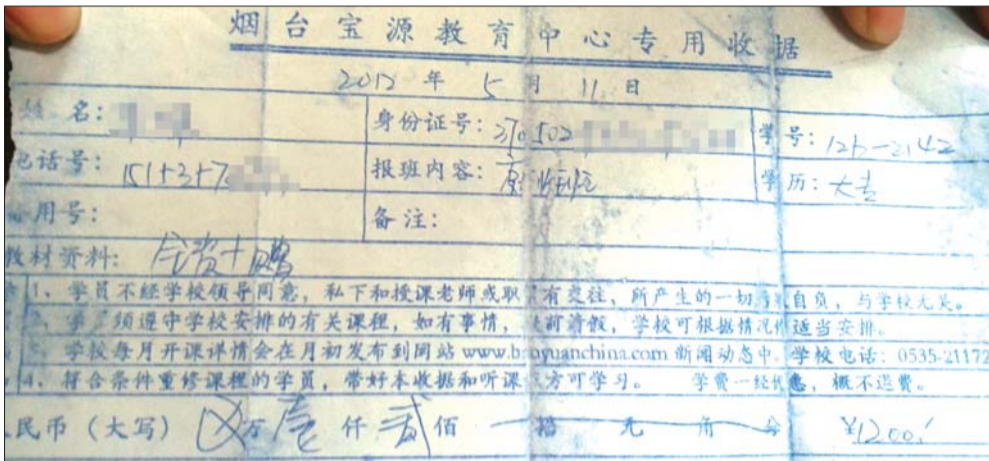 烟台宝源教育中心专用收据
2012 年 5 月 11 日
姓 名: 身份证号: 370502 学号: 12b-2142
电话号: 151 报班内容: 学 历: 大专
用号: 备 注:
教材资料: 全资十
1、学员不经学校领导同意,私下和授课老师或职 有交往,所产生的一切 自负,与学校无关。
须遵守学校安排的有关课程,如有事情, 前请假,学校可根据情况作适当安排。
学校每月开课详情会在月初发布到网站 www.baoyuanchina.com 新闻动态中。学校电话:0535-21172
4、符合条件重修课程的学员,带好本收据和听课 方可学习。 学费一经 ,概不退费。
民币(大写) 万 壹 仟 贰 佰 拾 元 角 分 ¥1200